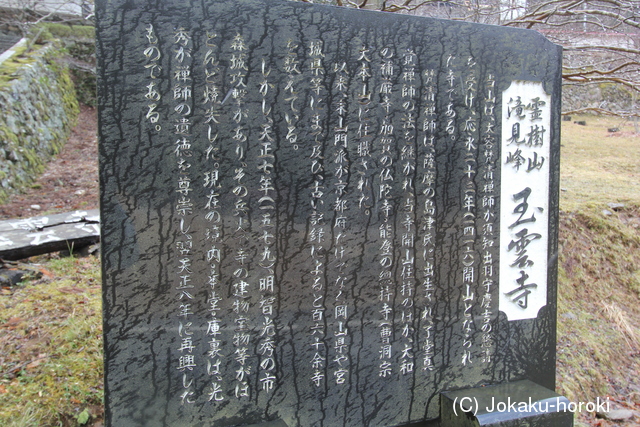 霊樹山
滝見峰
玉雲寺
当山は、大容梵清禅師が須知出羽守慶吉の懇請
を受け、応水二十三年(一四一六)開山となられ
た寺である。
梵清禅師は、薩摩の島津氏に出生され、了堂真
覚禅師の法を継がれ、当寺開山住持のほか、大和
の補巌寺、加賀の仏陀寺、能登の總持寺(曹洞宗
大本山)に住職された。
以来、末山門派が京都府だけでなく岡山県や宮
城県等にまで及び、古い記録によると百六十余寺
を数えている。
しかし、天正七年(一五七九)、明智光秀の市
森城攻撃があり、その兵火で寺の建物宝物等がほ
とんど焼失した。現在の境内、本堂、庫裏は、光
秀が禅師の遺徳を尊崇し、翌天正八年に再興した
ものである。
(C) Jokaku-horoki